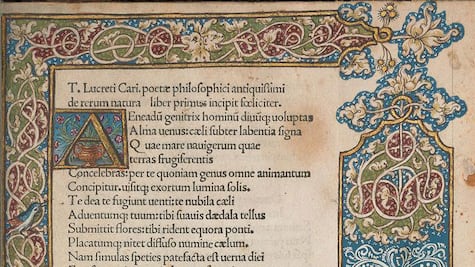 T. Lucreti Cari. poetæ philosophici antiquissimi
de rerum natura liber primus incipit fœliciter.
AEneadũ genitrix hominũ diuũq; uoluptas
Alma uenus: cæli subter labentia signa
Quæ mare nauigerum quæ terras frugiferentis
Concelebras: per te quoniam genus omne animantum
Concipitur. uisitq; exortum lumina solis.
Te dea te fugiunt uenti: te nubila cæli
Aduentumq; tuum: tibi suauis dædala tellus
Submittit flores: tibi rident equora ponti.
Placatumq; nitet diffuso numine cælum.
Nam simulas speties patefacta est uerna diei